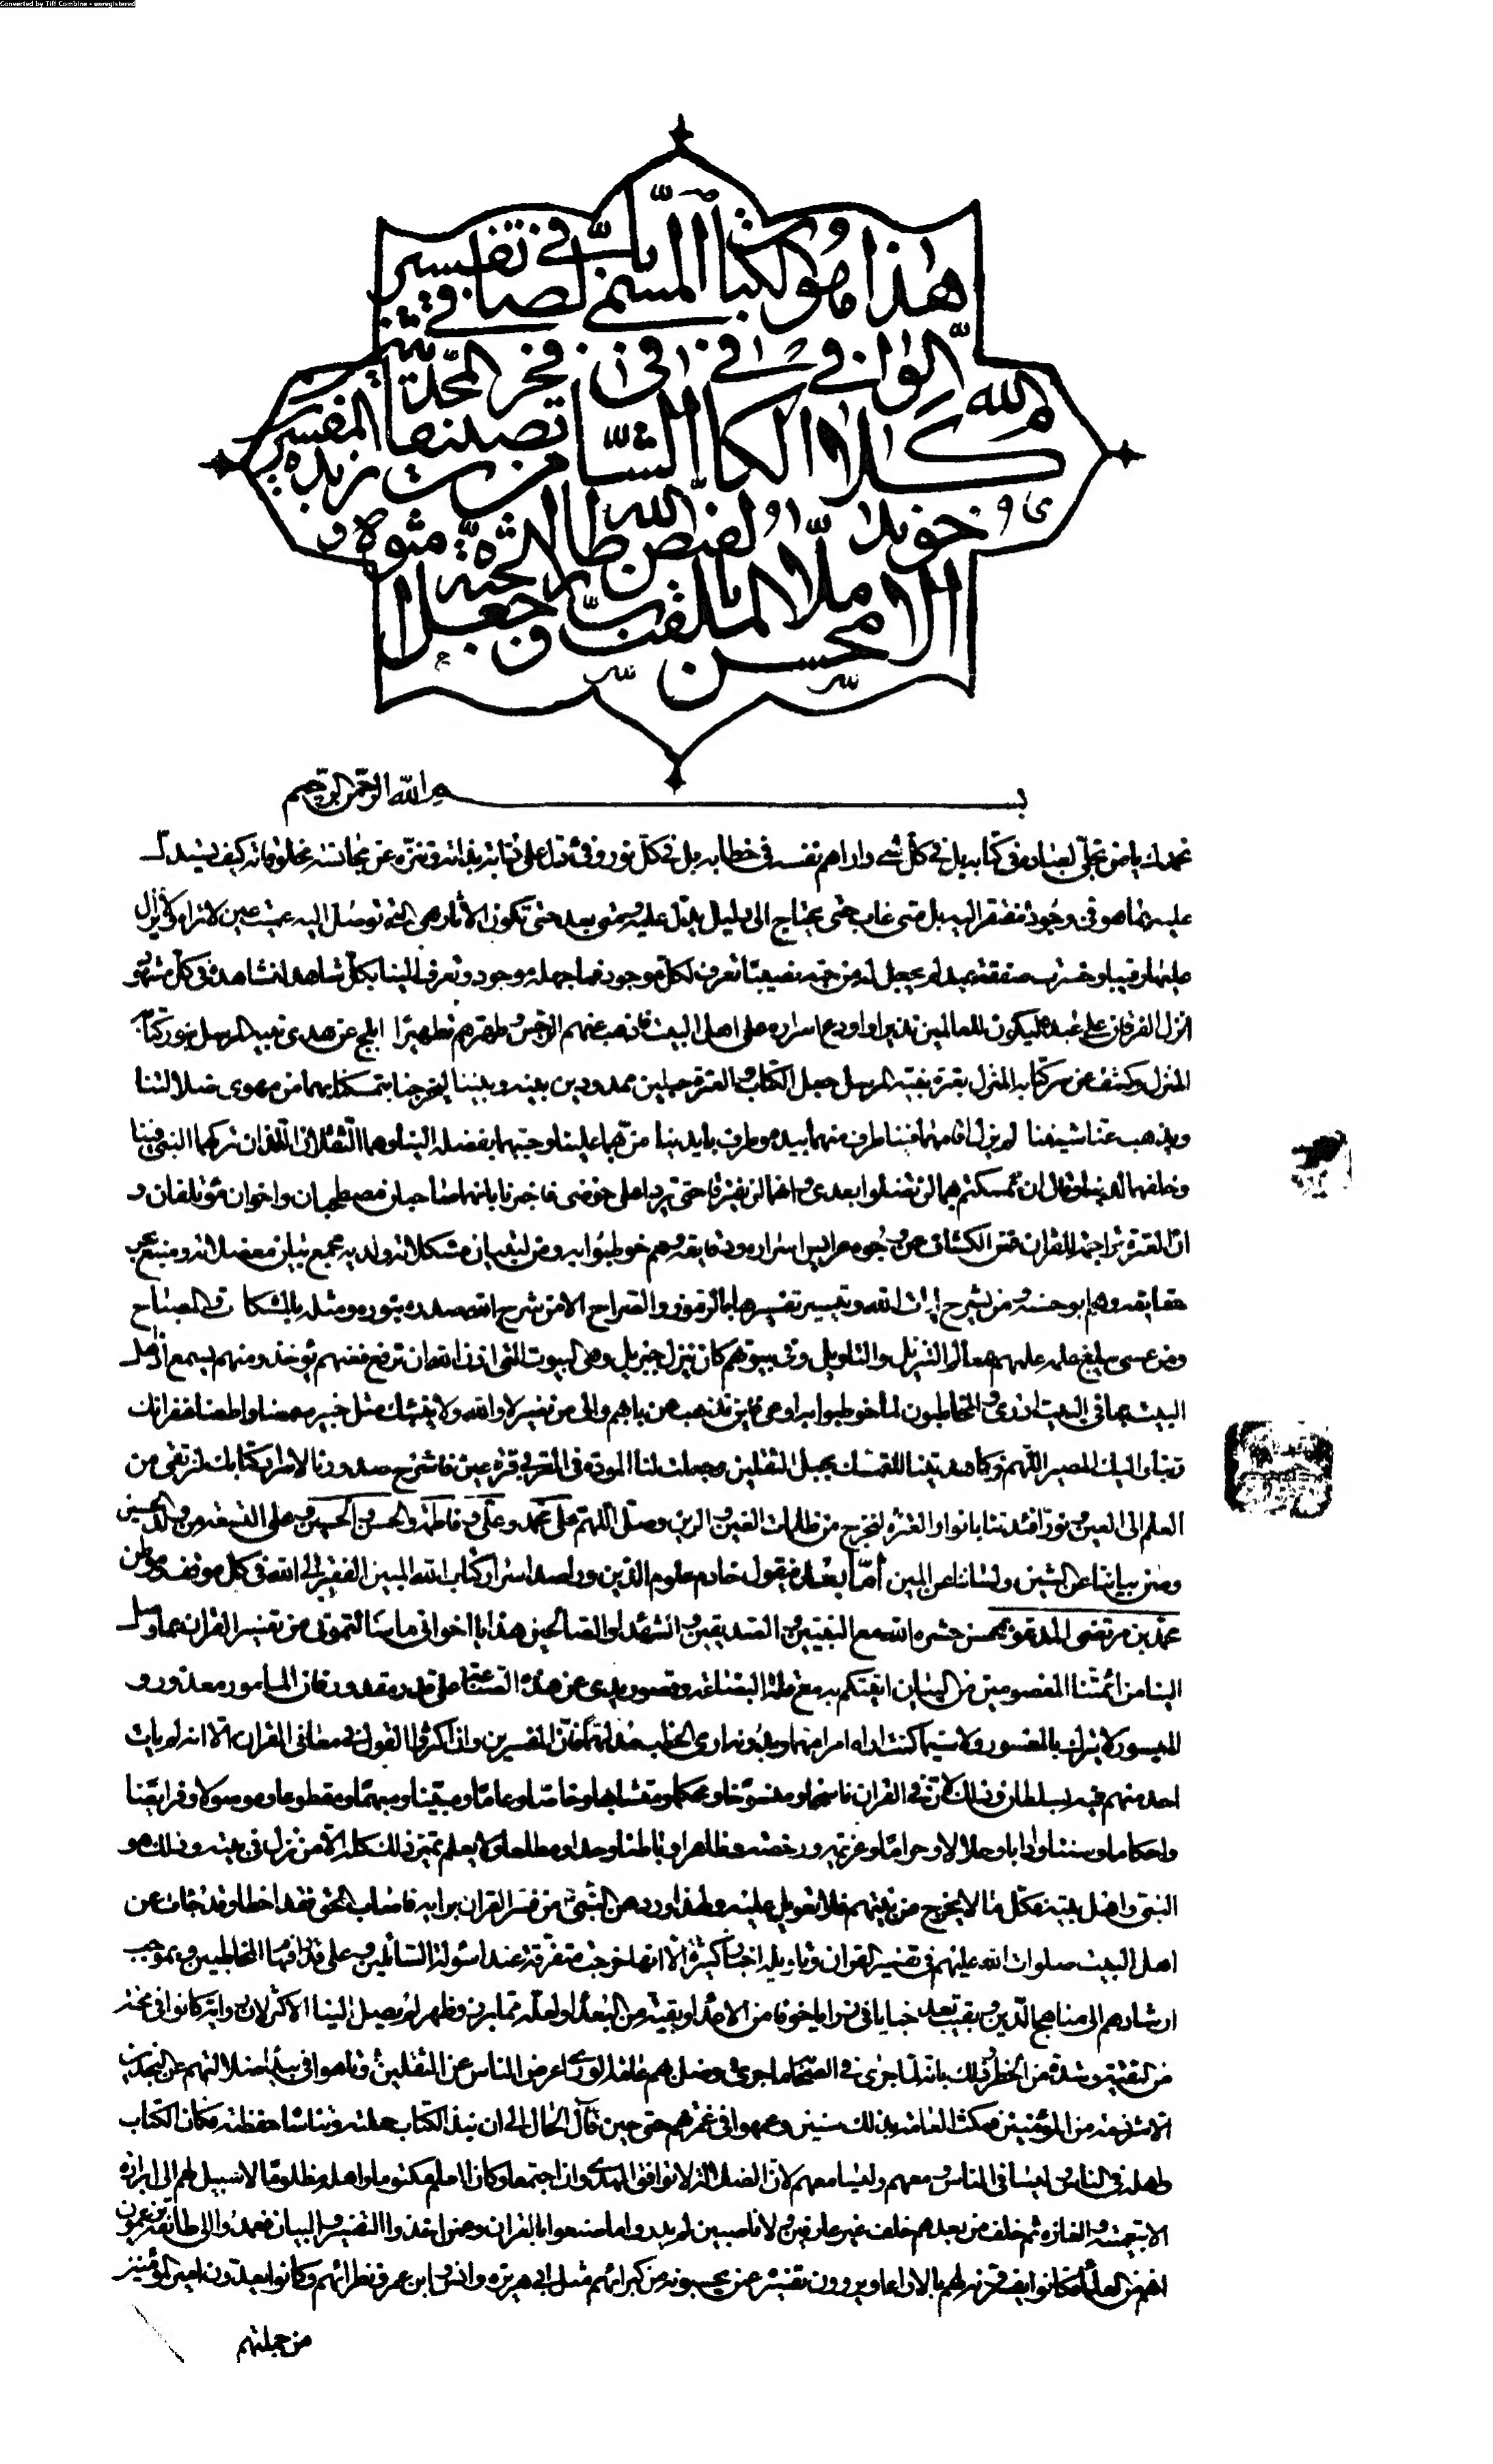 Converted by Tiff Combine - unregistered
هذا هو الكتاب المسمى بالصافي في تفسير
كلام الله الوافي الكافي الشافي من تصنيفات فخر المحدثين زبدة المفسرين
ملا محسن الملقب بالفيض طاب الله ثراه وجعل الجنة مثواه
بسم الله الرحمن الرحيم
نحمدك يا من تجلى لعباده في كتابه بل في كل شئ واراهم نفسه في خطابه بل في كل نور وفئ دل على ذاته بذاته وتنزه عن مجانسة مخلوقاته كيف يستدل
عليه بما هو في وجوده مفتقر اليه بل متى غاب حتى يحتاج الى دليل يدل عليه ومتى بعد حتى تكون الاثار هي التي توصل اليه عميت عين لا تراه ولا يزال
عليها رقيبا وخسرت صفقة عبد لم يجعل له من حبه نصيبا تعرف لكل موجود فما جهله موجود وتعرف الينا بكل شاهد لنشاهده في كل مشهود
انزل الفرقان على عبده ليكون للعالمين نذيرا واودع اسراره على اهل البيت فاذهب عنهم الرجس وطهرهم تطهيرا ابلج عن هدى نبيه المرسل بنور كتابه
المنزل وكشف عن سر كتابه المنزل بعترة نبيه المرسل جعل الكتاب والعترة حبلين ممدودين بينه وبيننا ليخرجنا بتمسكنا بهما من مهوى ضلالتنا
ويذهب عنا شيننا لم يزل اقامهما فينا طرف منهما بيده وطرف بايدينا من بهما علينا وحببهما بفضله الينا وهما الثقلان اللذان تركهما النبي فينا
وخلفهما لدينا وقال ان تمسكتم بهما لن تضلوا بعدي وانهما لن يفترقا حتى يردا على حوضي فاخبرنا بانهما صاحبان مصطحبان واخوان مؤتلفان و
ان العترة تراجمة للقرآن فمن الكشاف عن وجوه عرايس اسراره ودقايقه وهم خوطبوا به ومن لتبيان مشكلاته ولديهم مجمع بيان معضلاته ومنبع بحر
حقايقه وهم ابو حسنه ومن يشرح ايات الله وييسر تفسيرها بالرموز والصراح الا من شرح الله صدره بنوره ومثله بالمشكات والمصباح
ومن عسى يبلغ علمه علمهم بمعالم التنزيل والتأويل وفي بيوتهم كان ينزل جبريل وهي البيوت التي اذن الله ان ترفع فعنهم يؤخذ ومنهم يسمع اذ اهل
البيت بما في البيت ادرى والمخاطبون لما خوطبوا به اوعى فاين نذهب عن بابهم والى من نصير لا والله ولا ينبئك مثل خبير سمعنا واطعنا غفرانك
ربنا واليك المصير اللهم فكما هديتنا للتمسك بحبل الثقلين وجعلت لنا المودة في القربى قرة عين فاشرح صدورنا لاسرار كتابك لنرتقي من
العلم الى العين ونور افئدتنا بانوار العترة لنخرج من ظلمات الغين والرين وصل اللهم على محمد وعلي وفاطمة والحسن والحسين وعلى التسعة من ولد الحسين
وصن بياننا عن الشين ولساننا عن المين اما بعد فيقول خادم علوم الدين وراصد اسرار كتاب الله المبين الفقير الى الله في كل موقف وموطن
محمد بن مرتضى المدعو بمحسن حشره الله مع النبيين والصديقين والشهداء والصالحين هذا يا اخواني ما سألتموني من تفسير القرآن بما وصل
الينا من ائمتنا المعصومين من البيان اتيتكم به مع قلة البضاعة وقصور يدي عن هذه الصناعة على قدر مقدور فان المامور معذور و
الميسور لا يترك بالمعسور ولا سيما كنت اراه امرا مهما وبدونه ارى الخطب مدلهما فان المفسرين وان اكثروا القول في معاني القرآن الا انه لم يات
احد منهم فيه بسلطان وذلك لان في القرآن ناسخا ومنسوخا ومحكما ومتشابها وخاصا وعاما ومبينا ومبهما ومقطوعا وموصولا وفرايضا
واحكاما وسننا وادابا وحلالا وحراما وعزيمة ورخصة وظاهرا وباطنا وحدا ومطلعا ولا يعلم تميز ذلك كله الا من نزل في بيته وذلك هو
النبي واهل بيته فكل ما لا يخرج من بيتهم فلا تعويل عليه ولهذا ورد عن النبي من فسر القرآن برايه فاصاب الحق فقد اخطأ وقد جات عن
اهل البيت صلوات الله عليهم في تفسير القرآن وتاويله اخبار كثيرة الا انها خرجت متفرقة عند اسولة السائلين وعلى قدر افهام المخاطبين وبموجب
ارشادهم الى مناهج الدين وبقيت بعد خبايا في زوايا خوفا من الاعداء وبقية من البعداء ولعله مما برز وظهر لم يصل الينا الاكثر لان رواته كانوا في محنة
من التقية وشدة من الخطر وذلك بانه لما جرى في الصحابة ما جرى وضل بهم عامة الورى اعرض الناس عن الثقلين وتاهوا في بيداء ضلالتهم عن النجدين
الا شرذمة من المؤمنين فمكث العامة بذلك سنين وعمهوا في غمرتهم حتى حين فآل الحال الى ان نبذ الكتاب حملته وتناساه حفظته فكان الكتاب
واهله في الناس وليسا في الناس ومعهم وليسا معهم لان الضلالة لا توافق الهدى وان اجتمعا وكان العلم مكتوما واهله مظلوما لا سبيل لهم الى ابرازه
الا بتعميته والغازه ثم خلف من بعدهم خلف غير عارفين ولا ناصبين لم يدروا ما صنعوا بالقرآن وعمن اخذوا التفسير والبيان فعمدوا الى طائفة يزعمون
انهم من العلماء فكانوا يفسرونه لهم بالاراء ويروون تفسيره عمن يحسبونه من كبرائهم مثل ابي هريرة وانس وابن عمر ونظرائهم وكانوا يعدون امير المؤمنين
من جملتهم